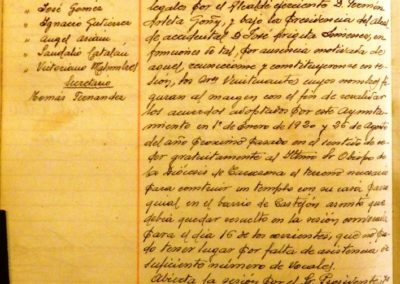 " José Gómez
" Ignacio Gutiérrez
" Angel Ariani
" Laudalio Catalán
" Victoriano
Secretario
Tomás Fernandez
legales por el Alcalde ejerciente D. Fermín
Arleta Goñy, y bajo la Presidencia del alcal
de accidental D. José Jiménez, en
funciones de tal, por ausencia motivada de
aquel, reunieronse y constituyeronse en se
sion, los Sres Veintenantes cuyos nombres fi
guran al margen con el fin de revalidar
los acuerdos adoptados por este Ayunta
miento en 1º de Enero de 1920 y 26 de Agosto
del año proximo pasado en el sentido de ce
der gratuitamente al Iltmo Sr Obispo de
la Diócesis de Tarazona el terreno necesario
para construir un templo con su casa parro
quial en el barrio de Castejón asunto que
debia quedar resuelto en la sesión convocada
para el dia 16 de los corrientes, que no pu
do tener lugar por falta de asistencia de
suficiente número de Vocales.
Abierta la sesión por el Sr Presidente, se